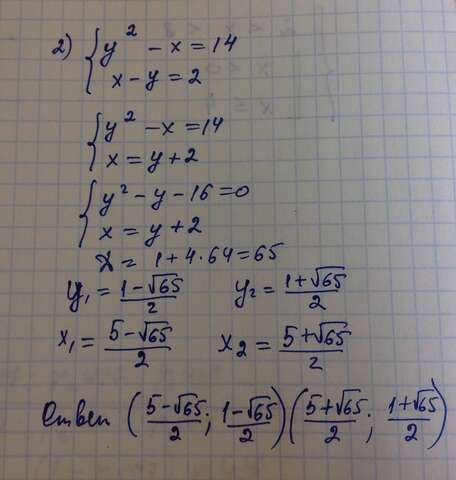 2) { y² - x = 14
x - y = 2
{ y² - x = 14
x = y + 2
{ y² - y - 16 = 0
x = y + 2
D = 1 + 4 · 64 = 65
y₁ = (1 - √65)/2 y₂ = (1 + √65)/2
x₁ = (5 - √65)/2 x₂ = (5 + √65)/2
Ответ ((5 - √65)/2 ; (1 - √65)/2) ((5 + √65)/2 ; (1 + √65)/2)